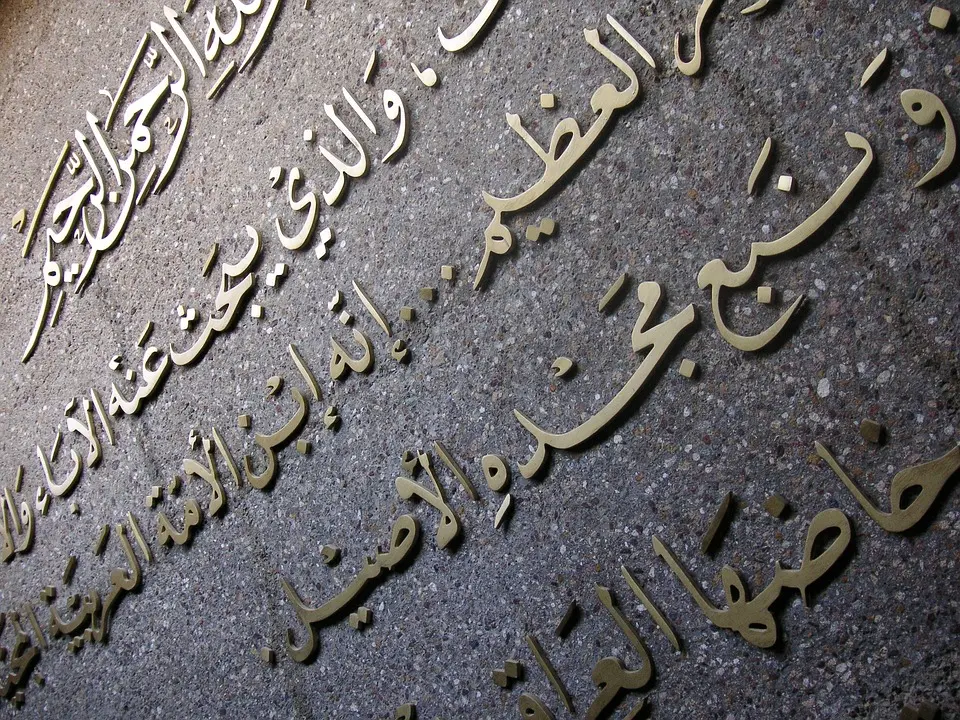 الله الرَّحمن الرَّحيم
وَالذي يبحَث عَنه الآباء
العظيم ... إنّه إبن الأمَة العَربيَة
وَنَبع مجْده الأصيْل